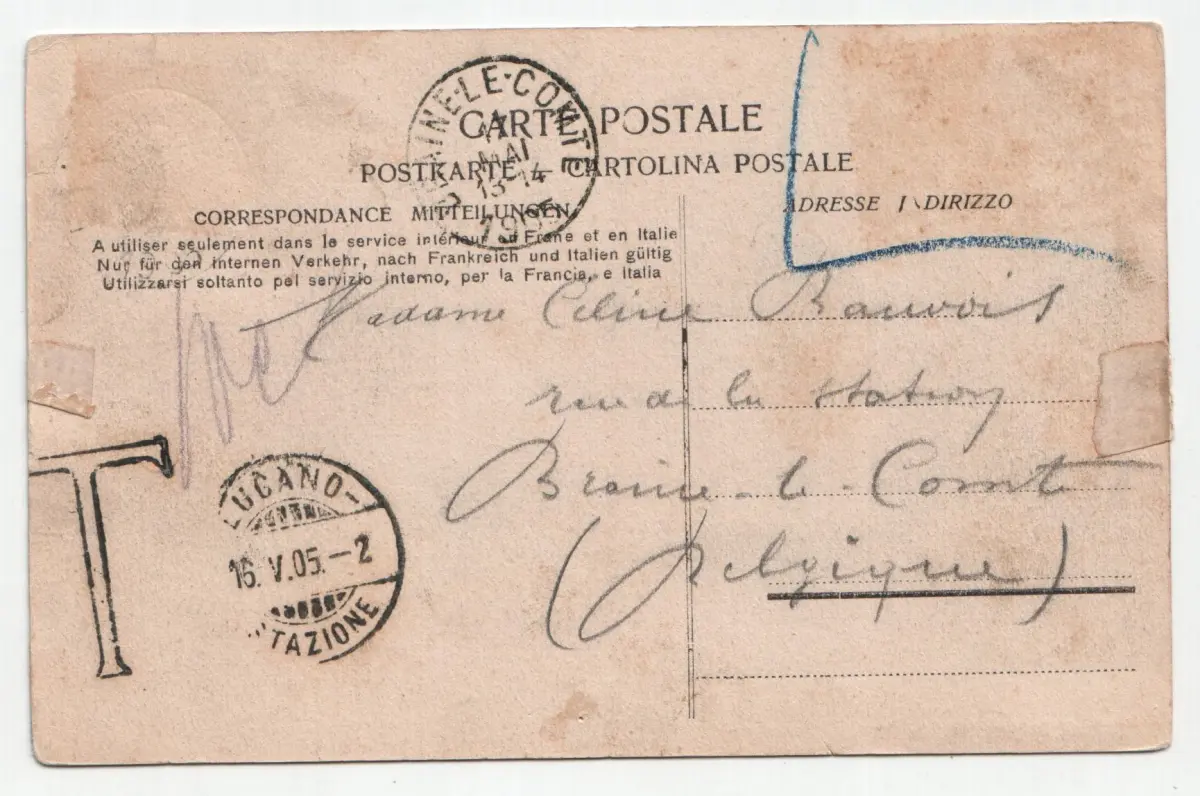 BRAINE-LE-COMTE
17
MAI
13-14
1905
CARTE POSTALE
POSTKARTE — CARTOLINA POSTALE
CORRESPONDANCE MITTEILUNGEN
ADRESSE INDIRIZZO
A utiliser seulement dans le service intérieur en Frane et en Italie
Nur für den internen Verkehr, nach Frankreich und Italien gültig
Utilizzarsi soltanto pel servizio interno, per la Francia, e Italia
Madame Céline Bauvois
rue de la station
Braine-le-Comte
(Belgique)
T
LUGANO-
16. V. 05.-2
STAZIONE